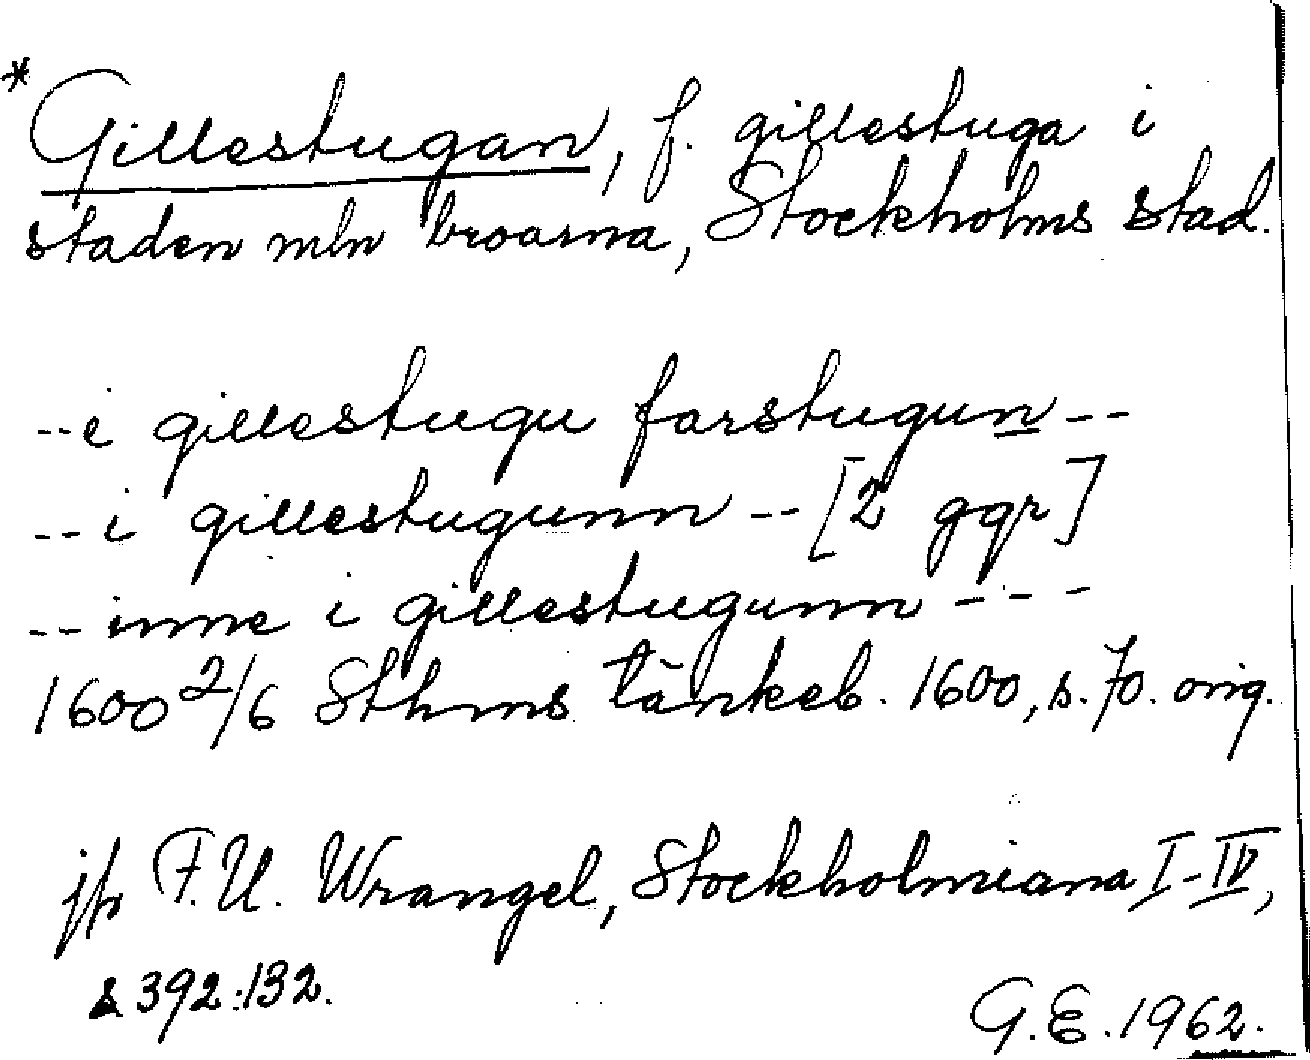 * Gillestugan, f. gillestuga i
staden mln broarna, Stockholms stad.
-- i gillestugu farstugun --
-- i gillestugunn -- [2 ggr]
-- inne i gillestugunn - - -
1600 2/6 Sthms tänkeb. 1600, s. 70. orig.
jfr F. U. Wrangel, Stockholmiana I-IV,
s 392:132.
G. E. 1962.